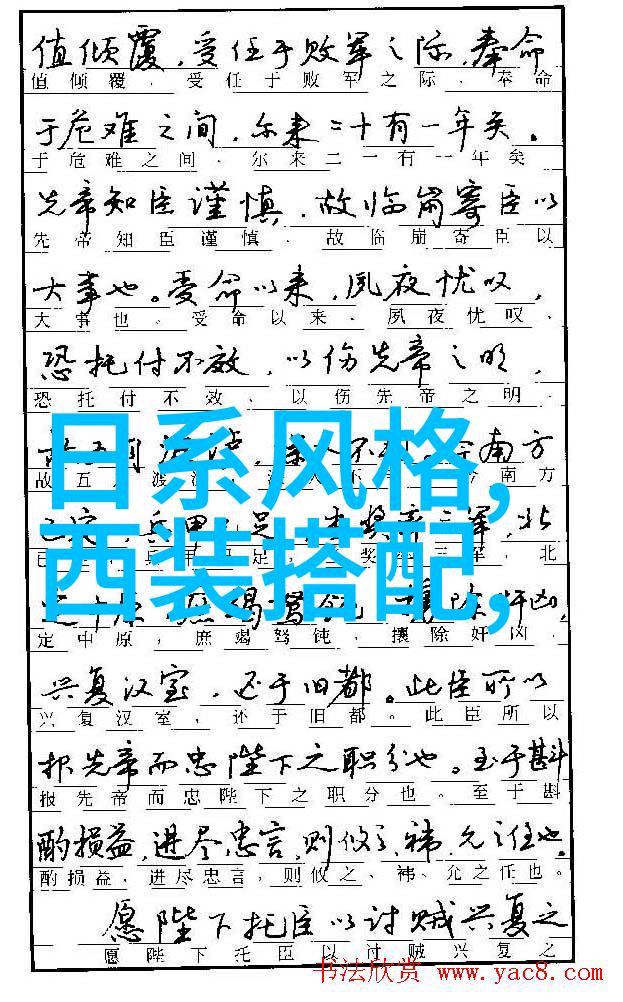 值倾覆，受任于败军之际，奉命
值倾覆，受任于败军之际，奉命
于危难之间，尔来二十有一年矣。
于危难之间，尔来二一有一年矣
先帝知臣谨慎，故临崩寄臣以
先帝知臣谨慎，故临崩寄臣以
大事也。受命以来，夙夜忧叹，
大事也。受命以来，夙夜忧叹，
恐托付不效，以伤先帝之明，
恐托付不效，以伤先帝之明，
日系风格，
西装搭配，
南方
故五 南方
北
足 奖 三军，北
定中原，庶竭驽钝，攘除奸凶，
兴复汉室，还于旧都。此臣所以
兴复汉室，还于旧都。此臣所以
报先帝而忠陛下之职分也。至于斟
报先帝而忠陛下之职分也。至于斟
酌损益，进尽忠言，则攸之、祎、允之任也。
酌损益，进尽忠言，则攸之、祎、允之任也。
愿陛下托臣以讨贼兴复之
愿陛下托臣以讨贼兴复之
书法欣赏 www.yac8.com